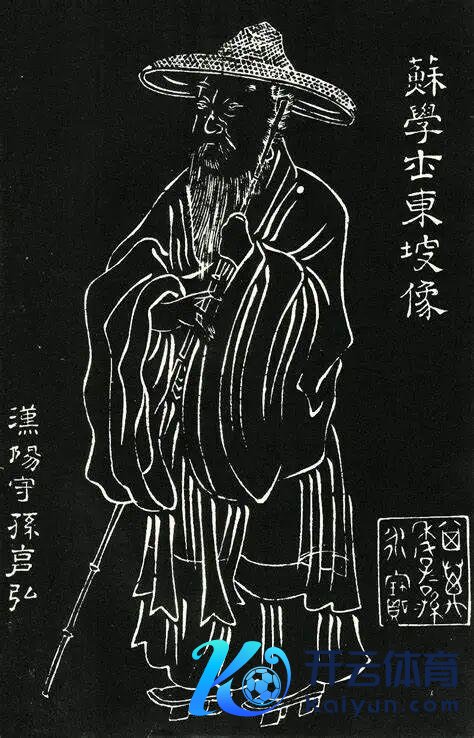 蘇學士東坡像
漢陽守孫弘
开云体育
kaiyun.com